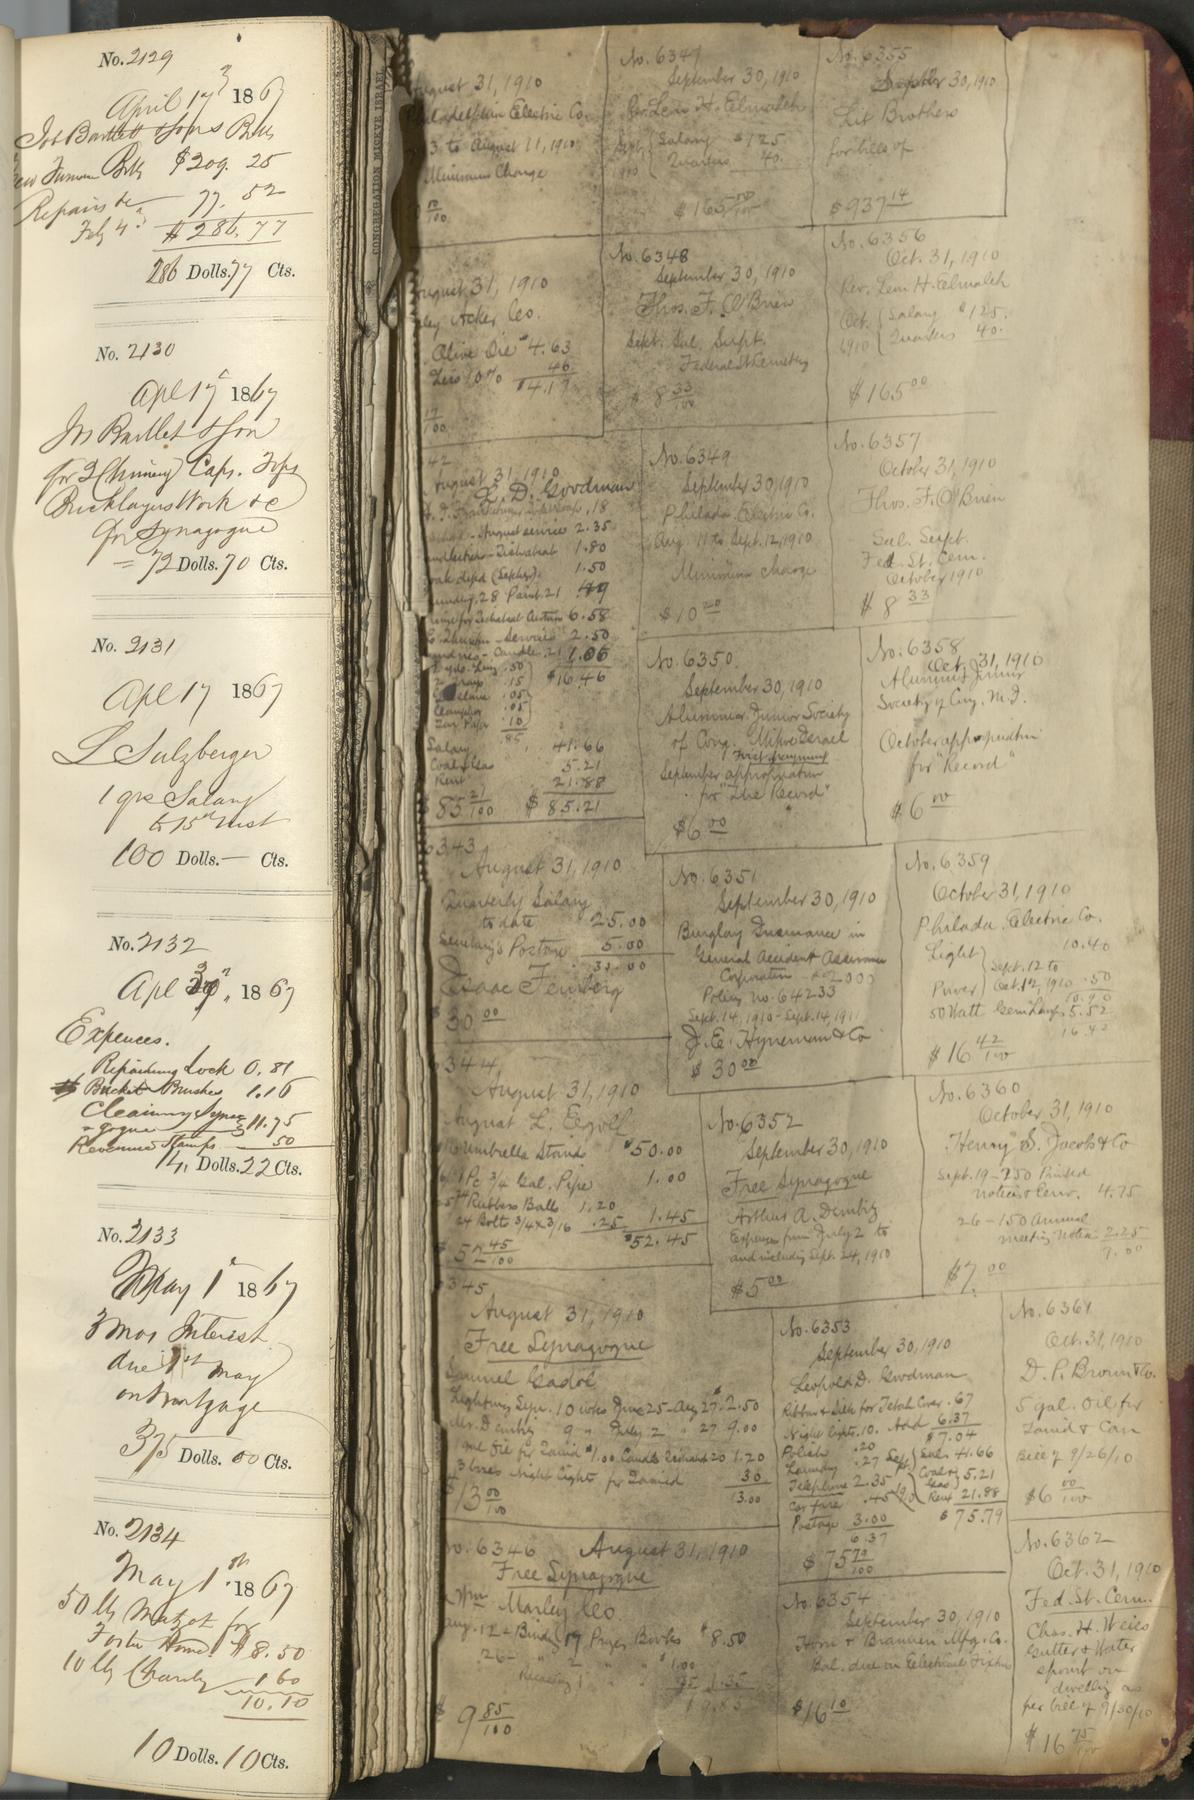 No. 2129
April 17 1867
Jos Bartlett & Sons Bills
New Furnace Bills $209. 25
Repairs &c 77. 52
Feby 4th $286. 77
286 Dolls. 77 Cts.
No. 2130
Apl 17 1867
Jos Bartlett & Son
for 2 Chimney Caps. Tops
Bricklayers Work &c
for Synagogue
72 Dolls. 70 Cts.
No. 2131
Apl 17 1867
L Sulzberger
1 qrs Salary
to 15th inst
100 Dolls. — Cts.
No. 2132
Apl 1867
Expences.
Repairing Lock 0.81
Bucket Brushes 1.16
Cleaning Syna-
gogue 11.75
Revenue Stamps 50
14, Dolls. 22 Cts.
No. 2133
May 1st 1867
3 mos Interest
due 1st May
on Mortgage
375 Dolls. 00 Cts.
No. 2134
May 1st 1867
50 lb Matzot for
Foster Home $8.50
10 lb Charity 1 60
10.10
10 Dolls. 10 Cts.
CONGREGATION MICKVE ISRAEL
August 31, 1910
Philadelphia Electric Co.
to August 11, 1910
Minimum Charge
August 31, 1910
Acker Co.
Olive Oil $4.63
Less 10% 46
$4.17
August 31, 1910
L. D. Goodman
August service 2.35
1.80
1.50
6.58
Services 2.50
Candle .21 1.06
$16.46
Salary 41.66
Coal & Gas 5.21
Rent 21.88
$85 21/100 $85.21
6343
August 31, 1910
Quarterly Salary
to date 25.00
Secretary's Postage 5.00
30.00
Isaac Feinberg
30 00
6344
August 31, 1910
August L.
Umbrella Stand $50.00
1 Pc 3/4 Gal. Pipe 1.00
Rubbers Balls 1.20
24 Bolts 3/4 x 3/16 .25 1.45
$52.45
$52 45/100
6345
August 31, 1910
Free Synagogue
Samuel Gadol
Lighting Syn. 10 wks June 25-Aug 27. $2.50
9 " July 2 " 27 9.00
1.20
3 boxes Night Lights for Tamid 30
13.00
$13 00/100
No. 6346 August 31, 1910
Free Synagogue
Wm Marley Co
Aug. 12 - Bindg 17 Prayer Books $8.50
$1.00
1.35
$9 85/100
No. 6347
September 30, 1910
Rev. Leon H. Elmaleh
Sept. 1910 Salary $125.
Quarters 40.
$165 00/100
No. 6348
September 30, 1910
Thos. F. O'Brien
Sept. Sal. Supt.
Federal St Cemetery
$8 33/100
No. 6349
September 30, 1910
Philada Electric Co.
Aug. 11 to Sept. 12, 1910
Minimum Charge
$10
No. 6350
September 30, 1910
Alumni Junior Society
of Cong. Mikve Israel
First payment
September appropriation
for "The Record"
$6 00
No. 6351
September 30, 1910
Burglary Insurance in
General Accident Assurance
Corporation - $2000
Policy no. 64233
Sept. 14, 1910 - Sept. 14, 1911
J. E. Hyneman & Co
$30 00
No. 6352
September 30, 1910
Free Synagogue
Arthur A. Dembitz
Expenses from July 2 to
and including Sept. 24, 1910
$5 00
No. 6353
September 30, 1910
Leopold D. Goodman
Ribbon & Silk for Tebah Cover .67
Night Lights .10. Add 6.37
$7.04
Polish .20
Laundry .27 Sept Sal. 41.66
Telephone 2.35 1910 Coal & Gas 5.21
Car fare .45 Rent 21.88
Postage 3.00 $75.79
6.37
$75 79/100
No. 6354
September 30, 1910
Horn & Brannen Mfg. Co.
Bal. due on Electrical Fixtures
$16 10
No. 6355
September 30, 1910
Lit Brothers
for bills of
$937 14
No. 6356
Oct. 31, 1910
Rev. Leon H. Elmaleh
Oct. 1910 Salary $125.
Quarters 40.
$165 00
No. 6357
October 31, 1910
Thos. F. O'Brien
Sal. Supt.
Fed. St. Cem.
October 1910
$8 33
No. 6358
Oct. 31, 1910
Alumni Junior
Society of Cong. M. I.
October appropriation
for "Record"
$6 00
No. 6359
October 31, 1910
Philada. Electric Co.
Light 10.40
Sept. 12 to
Power Oct. 12, 1910 .50
10.90
50 Watt Gem Lamps 5.52
16.42
$16 42/100
No. 6360
October 31, 1910
Henry S. Jacobs & Co
Sept. 19 - 250 Printed
notices & Env. 4.75
26 - 150 Annual
meeting notices 2.25
7.00
$7. 00
No. 6361
Oct. 31, 1910
D. P. Brown & Co.
5 gal. Oil for
Tamid & Can
Bill of 9/26/10
$6 00/100
No. 6362
Oct. 31, 1910
Fed. St. Cem.
Chas. H. Weiss
Gutter & Water
spout on
dwelling as
per bill of 9/30/10
$16 75/100